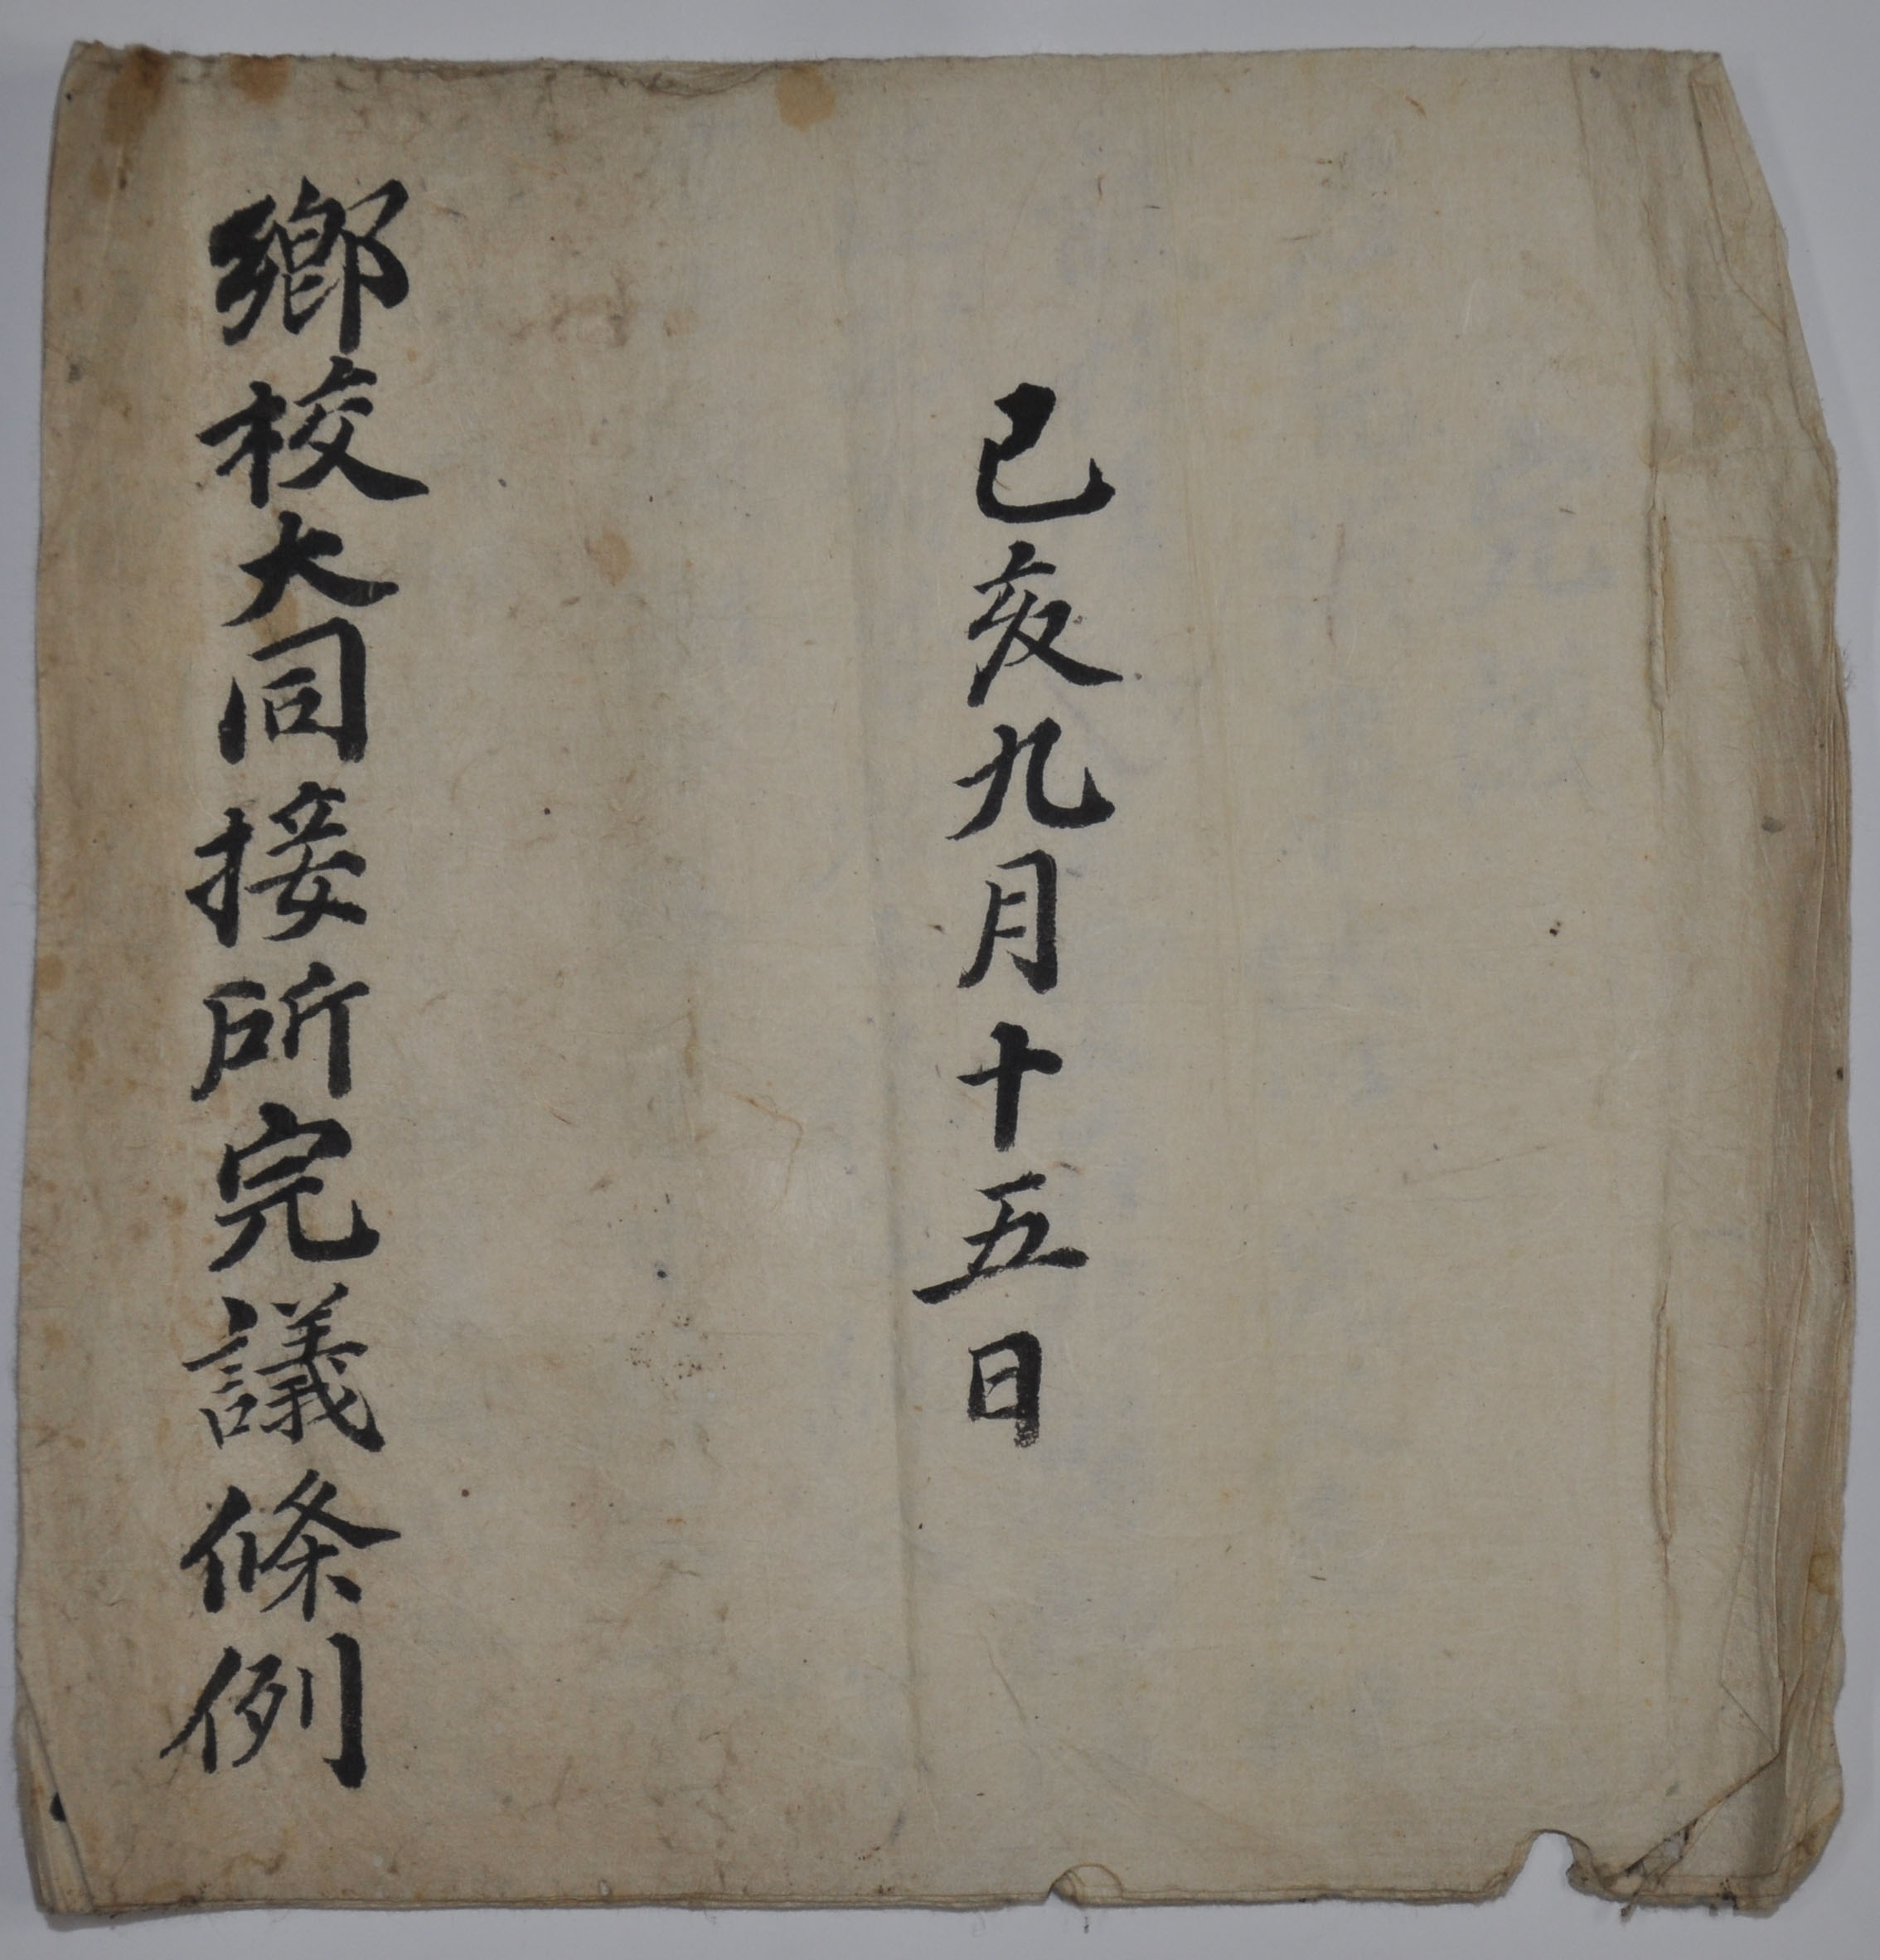 己亥九月十五日
鄕校大同接所完議條例